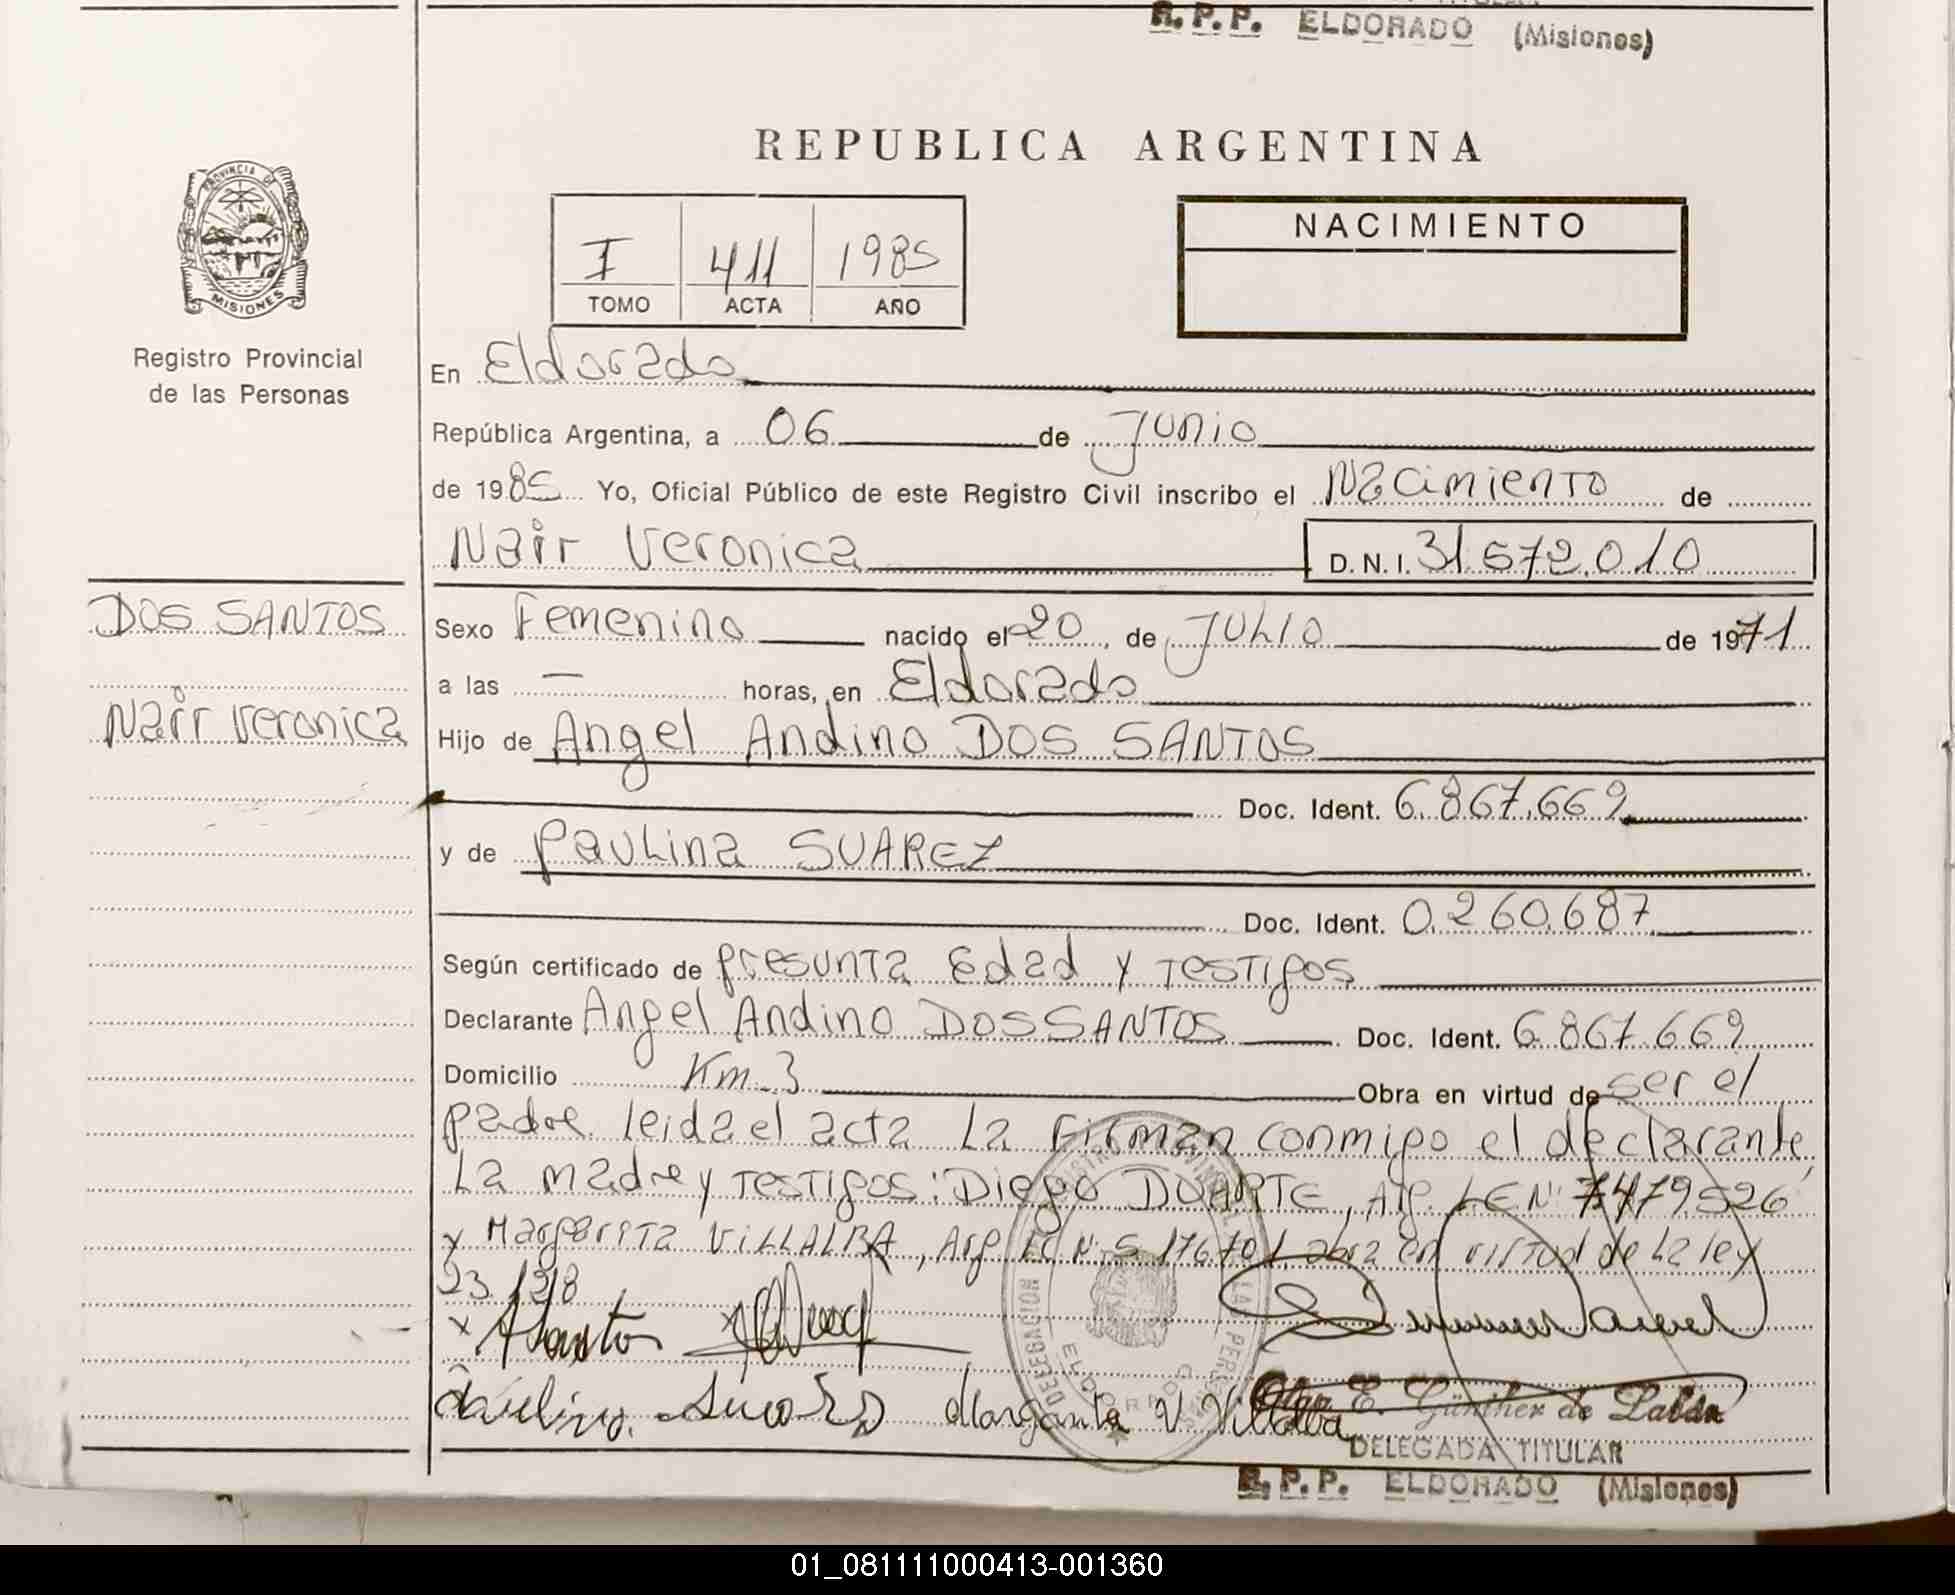 R. P. P. ELDORADO (Misiones)
REPUBLICA ARGENTINA
PROVINCIA DE
MISIONES
Registro Provincial
de las Personas
I 411 1985
TOMO ACTA AÑO
NACIMIENTO
En Eldorado
República Argentina, a 06 de Junio
de 1985 Yo, Oficial Público de este Registro Civil inscribo el Nacimiento de
Nair Veronica D. N. I. 31.572.010
DOS SANTOS
Nair Veronica
Sexo Femenino nacido el 20, de JULIO de 1971
a las — horas, en Eldorado
Hijo de Angel Andino DOS SANTOS
Doc. Ident. 6.867.669
y de Paulina SUAREZ
Doc. Ident. 0.260.687
Según certificado de presunta Edad y Testigos
Declarante Angel Andino DOS SANTOS Doc. Ident. 6.867.669
Domicilio Km. 3 Obra en virtud de ser el
padre leida el acta La Firman conmigo el declarante
La madre y Testigos: Diego DUARTE, Arg. LE N° 7.479.526
y Margarita VILLALBA, Arg. LC N° 5.176.701 obra en virtud de La ley
23.128
Margarita V Villalba
E. Günther de Labán
DELEGADA TITULAR
R. P. P. ELDORADO (Misiones)
01_081111000413-001360